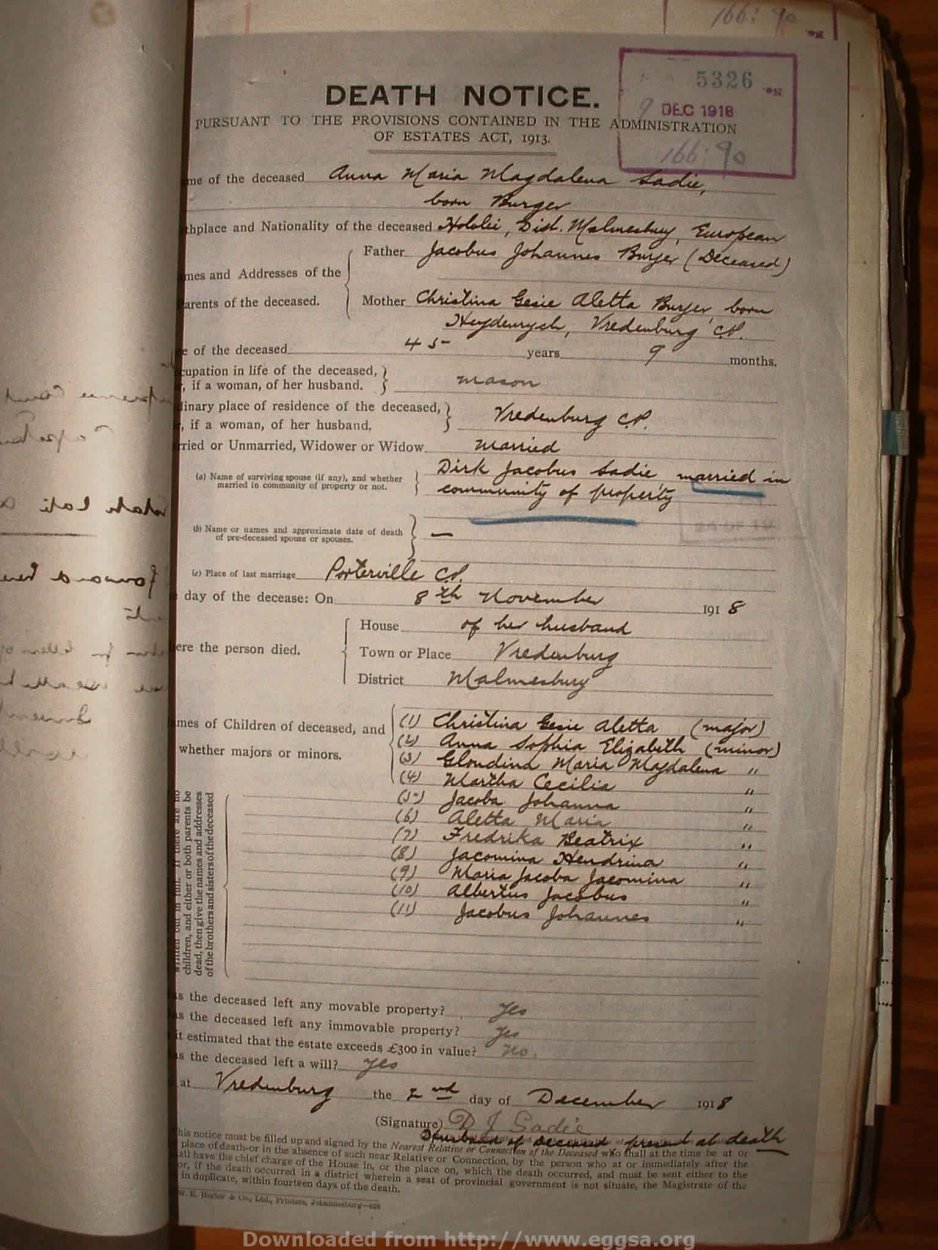 166: 90
5326
9 DEC 1918
166: 90
DEATH NOTICE.
PURSUANT TO THE PROVISIONS CONTAINED IN THE ADMINISTRATION
OF ESTATES ACT, 1913.
me of the deceased Anna Maria Magdalena Sadie,
born Burger
thplace and Nationality of the deceased Dist. Malmesbury, European
mes and Addresses of the
arents of the deceased.
Father Jacobus Johannes Burger (Deceased)
Mother Christina Gesie Aletta Burger born
Heydenrych, Vredenburg C.P.
e of the deceased 45 years 9 months.
cupation in life of the deceased,
, if a woman, of her husband. mason
dinary place of residence of the deceased,
, if a woman, of her husband. Vredenburg C.P.
rried or Unmarried, Widower or Widow married
(a) Name of surviving spouse (if any), and whether
married in community of property or not.
Dirk Jacobus Sadie married in
community of property
(b) Name or names and approximate date of death
of pre-deceased spouse or spouses. —
(c) Place of last marriage Porterville C.P.
day of the decease: On 8th November 1918
ere the person died.
House of her husband
Town or Place Vredenburg
District Malmesbury
mes of Children of deceased, and
whether majors or minors.
(1) Christina Gesie Aletta (major)
(2) Anna Sophia Elizabeth (minor)
(3) Gloudina Maria Magdalena "
(4) Martha Cecilia "
(5) Jacoba Johanna "
(6) Aletta Maria "
(7) Fredrika Beatrix "
(8) Jacomina Hendrina "
(9) Maria Jacoba Jacomina "
(10) Albertus Jacobus "
(11) Jacobus Johannes "
written out in full. If there are no
children, and either or both parents be
dead, then give the names and addresses
of the brothers and sisters of the deceased
as the deceased left any movable property? Yes
as the deceased left any immovable property? Yes
it estimated that the estate exceeds £300 in value? No.
as the deceased left a will? Yes
at Vredenburg the 2nd day of December 1918
(Signature) D J Sadie
Husband of deceased present at death
his notice must be filled up and signed by the Nearest Relative or Connection of the Deceased who shall at the time be at or
place of death—or in the absence of such near Relative or Connection, by the person who at or immediately after the
all have the chief charge of the House in, or the place on, which the death occurred, and must be sent either to the
or, if the death occurred in a district wherein a seat of provincial government is not situate, the Magistrate of the
in duplicate, within fourteen days of the death.
W. E. Hortor & Co., Ltd., Printers, Johannesburg
Downloaded from http://www.eggsa.org